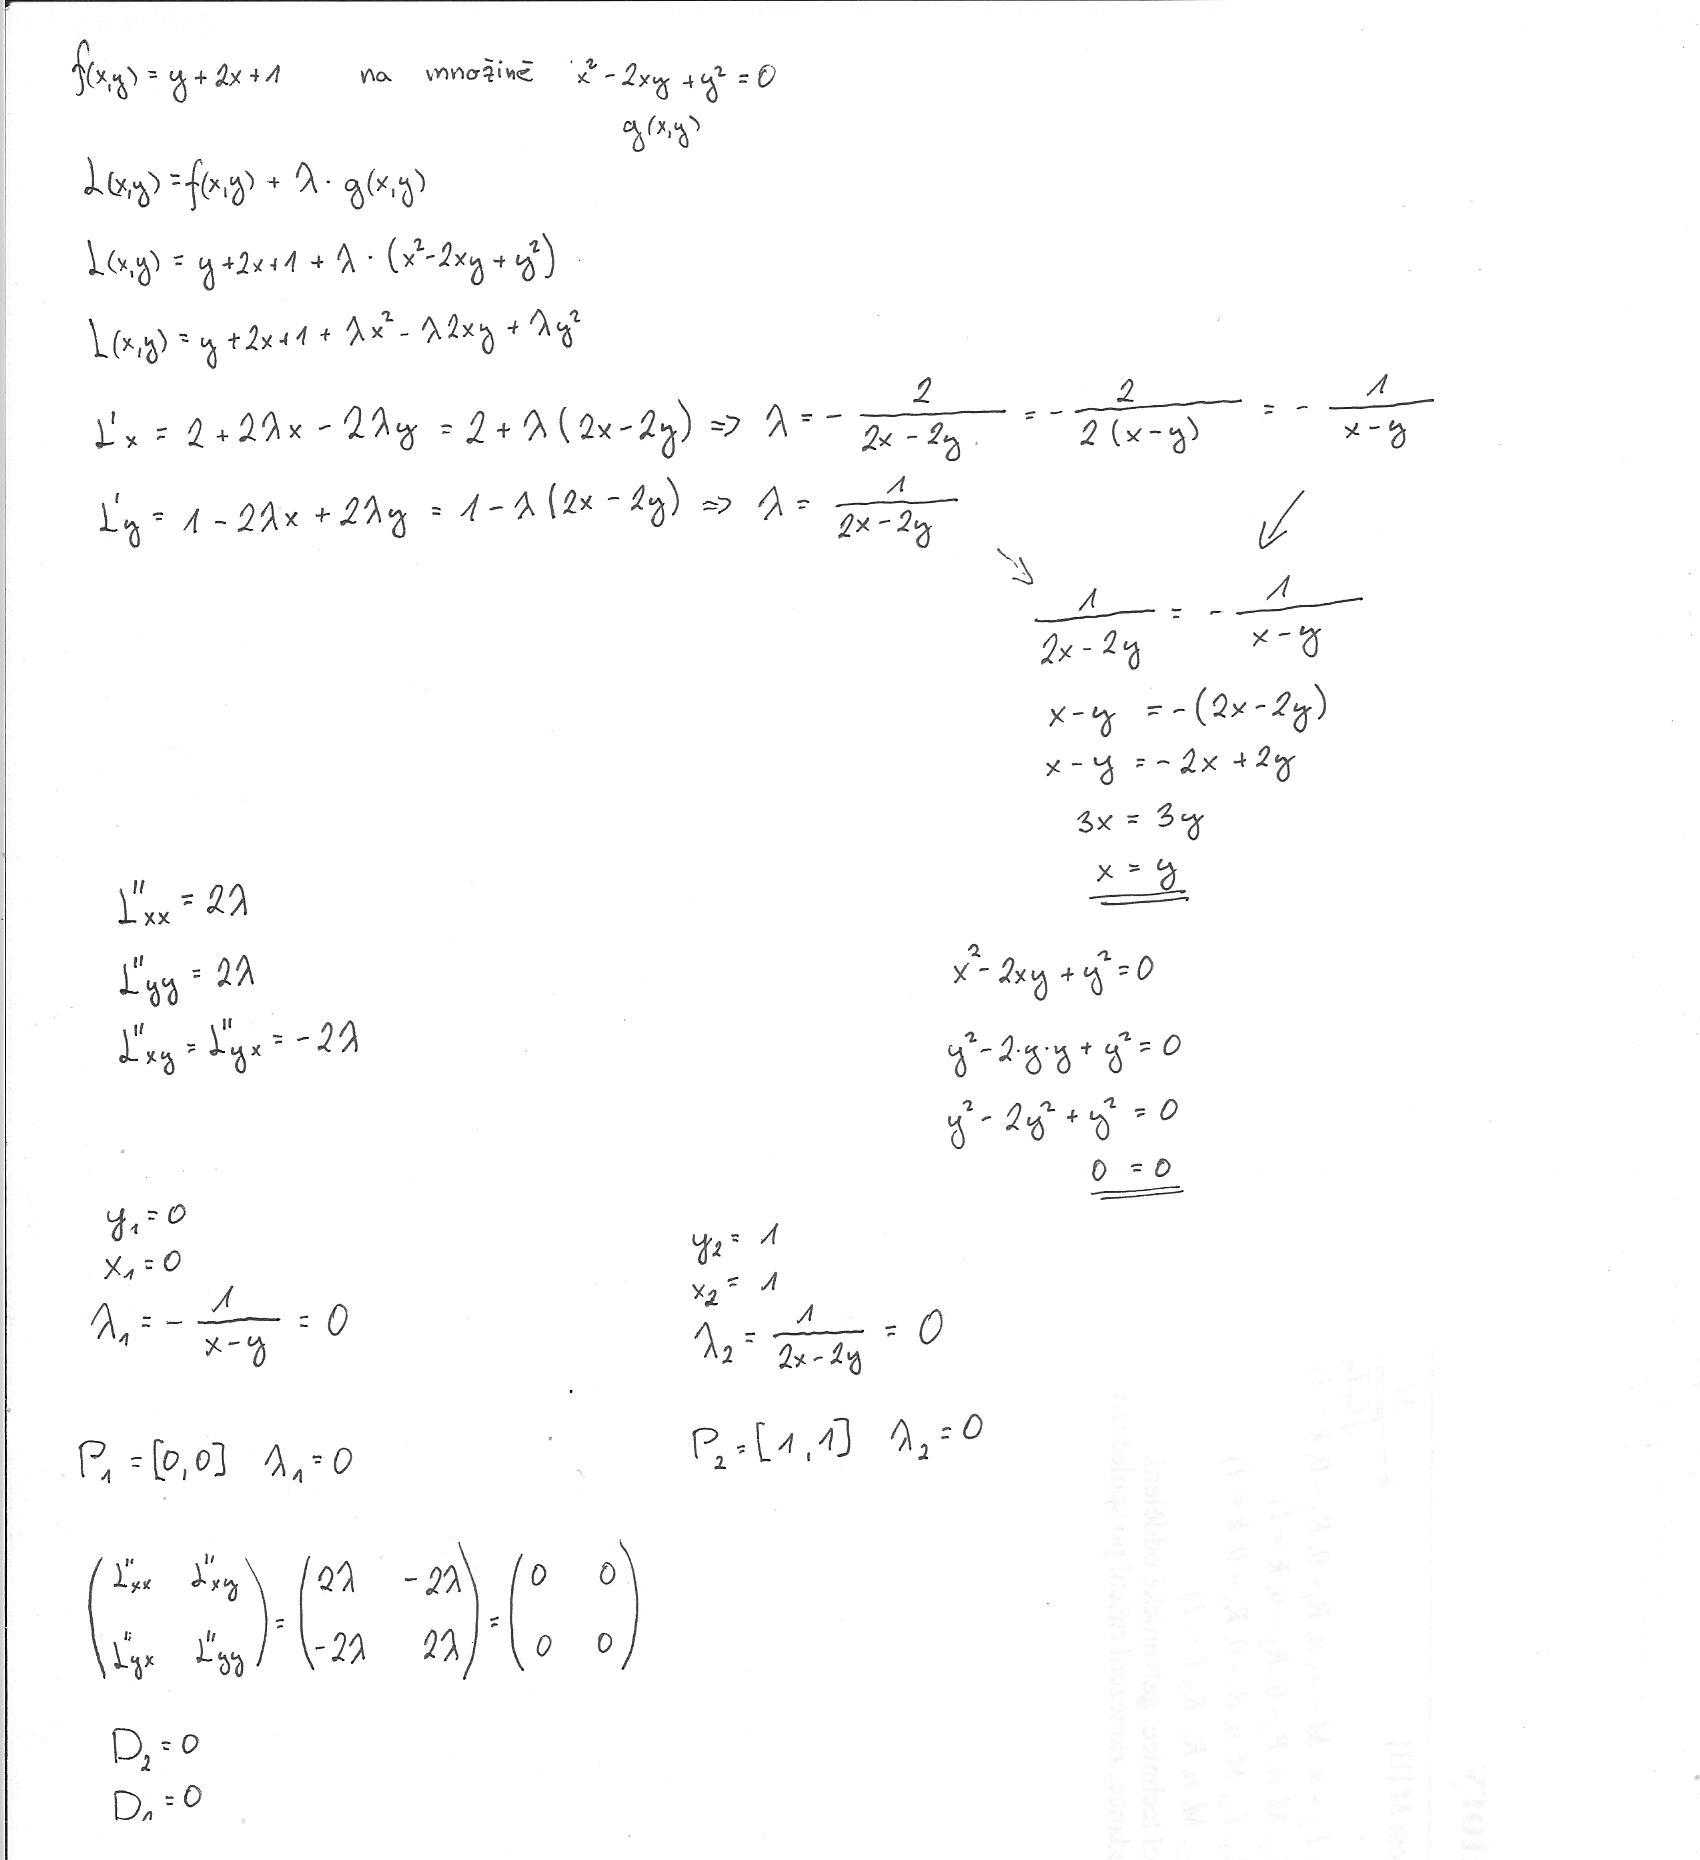 f(x,y) = y + 2x + 1 na množině x² - 2xy + y² = 0
g(x,y)
L(x,y) = f(x,y) + λ · g(x,y)
L(x,y) = y + 2x + 1 + λ · (x² - 2xy + y²)
L(x,y) = y + 2x + 1 + λx² - λ2xy + λy²
L'x = 2 + 2λx - 2λy = 2 + λ(2x - 2y) => λ = - 2/(2x - 2y) = - 2/(2(x - y)) = - 1/(x - y)
L'y = 1 - 2λx + 2λy = 1 - λ(2x - 2y) => λ = 1/(2x - 2y)
1/(2x - 2y) = - 1/(x - y)
x - y = -(2x - 2y)
x - y = - 2x + 2y
3x = 3y
x = y
L''xx = 2λ
L''yy = 2λ
L''xy = L''yx = - 2λ
x² - 2xy + y² = 0
y² - 2·y·y + y² = 0
y² - 2y² + y² = 0
0 = 0
y₁ = 0
x₁ = 0
λ₁ = - 1/(x - y) = 0
y₂ = 1
x₂ = 1
λ₂ = 1/(2x - 2y) = 0
P₁ = [0,0] λ₁ = 0
P₂ = [1,1] λ₂ = 0
( L''xx L''xy ) = ( 2λ -2λ ) = ( 0 0 )
( L''yx L''yy ) ( -2λ 2λ ) ( 0 0 )
D₂ = 0
D₁ = 0